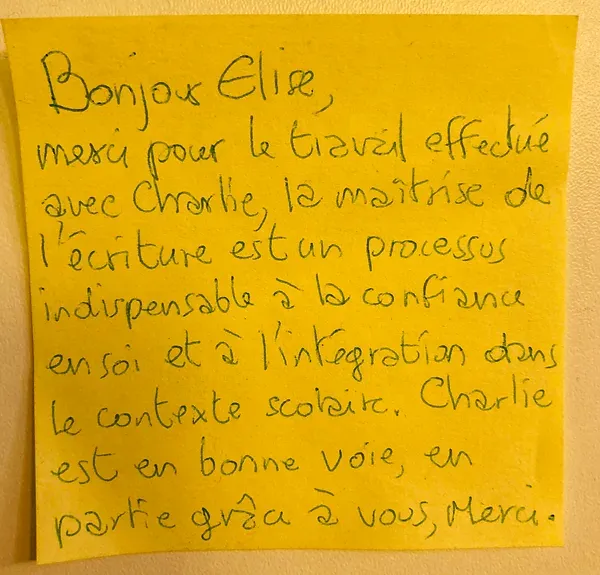 Bonjour Elise,
merci pour le travail effectué
avec Charlie, la maîtrise de
l'écriture est un processus
indispensable à la confiance
en soi et à l'intégration dans
le contexte scolaire. Charlie
est en bonne voie, en
partie grâce à vous, Merci.